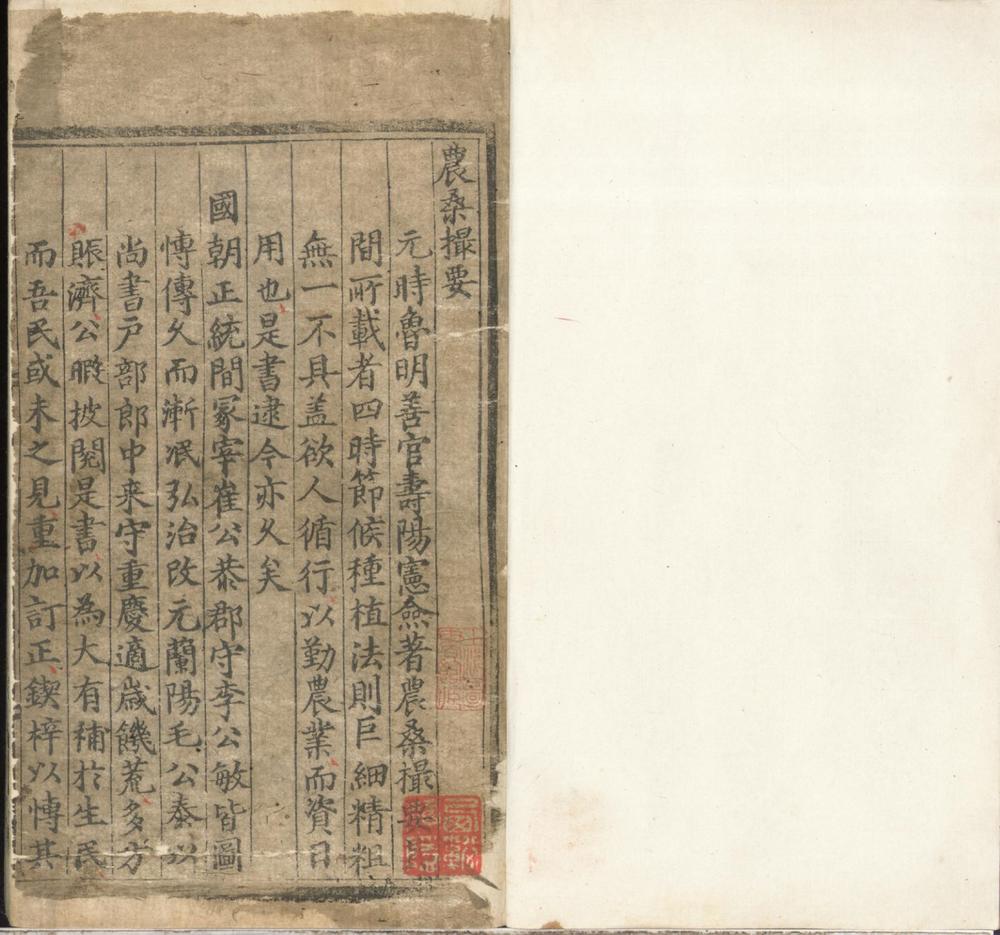 農桑撮要
元時魯明善官壽陽憲僉著農桑撮要
間所載者四時節候種植法則巨細精粗
無一不具盖欲人循行以勤農業而資日
用也是書逮今亦久矣
國朝正統間冢宰崔公恭郡守李公敏皆圖
愽傳久而漸泯弘治改元蘭陽毛公泰以
尚書户部郎中来守重慶適歲饑荒多方
賑濟公暇披閱是書以為大有補扵生民
而吾民或未之見重加訂正鍥梓以愽其